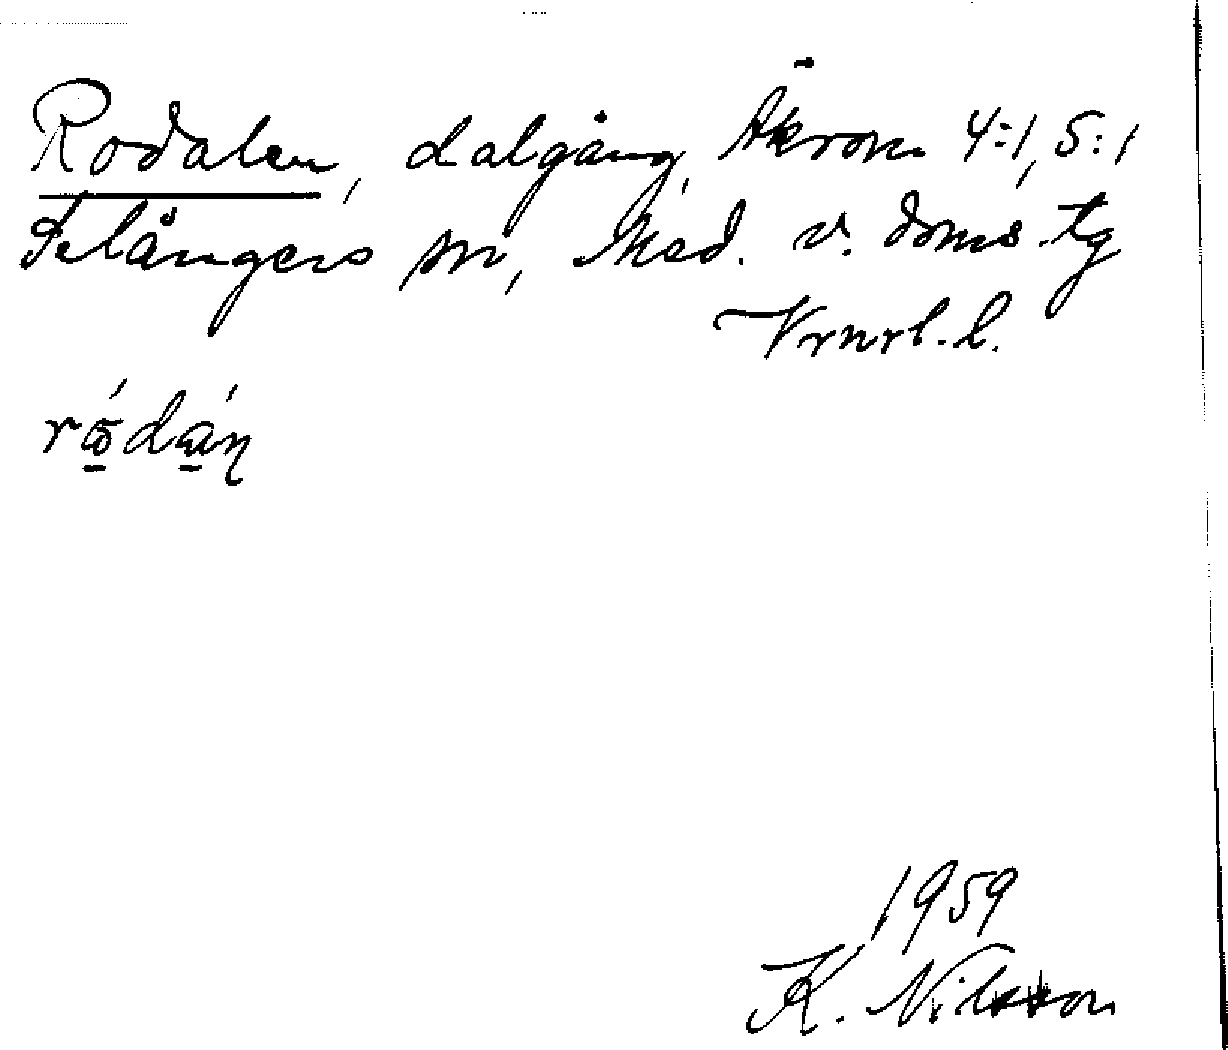 Rodalen, dalgång, Äkrom 4:1, 5:1
Selångers sn, Med. v. doms.tg
Vrnrl. l.
ródán
1959
K. Nilsson